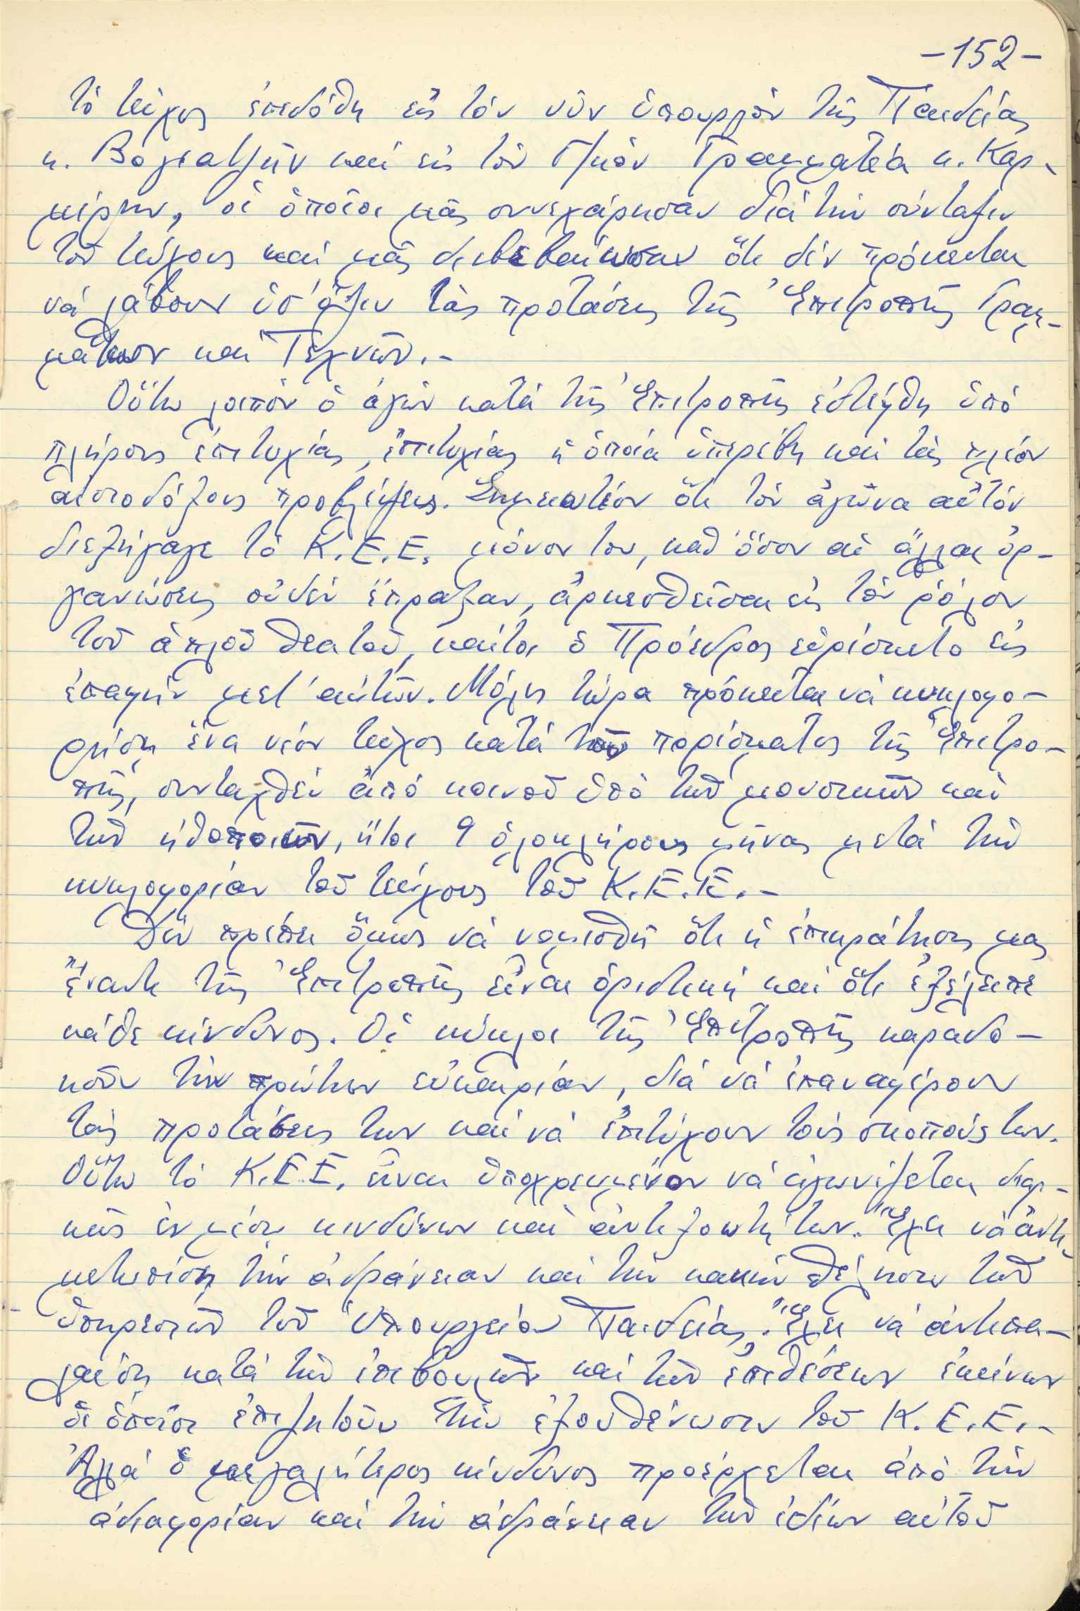 -152-
τό τεῦχος ἐπεδόθη εἰς τόν νῦν ὑπουργόν τῆς Παιδείας
κ. Βογιατζῆν καί εἰς τόν Γ/κόν Γραμματέα κ. Καρ-
μίρην, οἱ ὁποῖοι μᾶς συνεχάρησαν διά τήν σύνταξιν
τοῦ τεύχους καί μᾶς διεβεβαίωσαν ὅτι δέν πρόκειται
νά λάβουν ὑπ' ὄψιν τάς προτάσεις τῆς Ἐπιτροπῆς Γραμ-
μάτων καί Τεχνῶν.-
Οὕτω λοιπόν ὁ ἀγών κατά τῆς Ἐπιτροπῆς ἐστέφθη ὑπό
πλήρους ἐπιτυχίας, ἐπιτυχίας ἡ ὁποία ὑπερέβη καί τάς πλέον
αἰσιοδόξους προβλέψεις. Σημειωτέον ὅτι τόν ἀγῶνα αὐτόν
διεξήγαγε τό Κ.Ε.Ε. μόνον του, καθ' ὅσον αἱ ἄλλαι ὀρ-
γανώσεις οὐδέν ἔπραξαν, ἀρκεσθεῖσαι εἰς τόν ρόλον
τοῦ ἁπλοῦ θεατοῦ, καίτοι ὁ Πρόεδρος εὑρίσκετο εἰς
ἐπαφήν μετ' αὐτῶν. Μόλις τώρα πρόκειται νά κυκλοφο-
ρήσῃ ἕνα νέον τεῦχος κατά τοῦ πορίσματος τῆς Ἐπιτρο-
πῆς, συνταχθέν ἀπό κοινοῦ ὑπό τῶν μουσικῶν καί
τῶν ἠθοποιῶν, ἤτοι 9 ὁλοκλήρους μῆνας μετά τήν
κυκλοφορίαν τοῦ τεύχους τοῦ Κ.Ε.Ε.-
Δέν πρέπει ὅμως νά νομισθῇ ὅτι ἡ ἐπικράτησις μας
ἔναντι τῆς Ἐπιτροπῆς εἶναι ὁριστική καί ὅτι ἐξέλειπε
κάθε κίνδυνος. Οἱ κύκλοι τῆς Ἐπιτροπῆς καραδο-
κοῦν τήν πρώτην εὐκαιρίαν, διά νά ἐπαναφέρουν
τάς προτάσεις των καί νά ἐπιτύχουν τούς σκοπούς των.
Οὕτω τό Κ.Ε.Ε. εἶναι ὑποχρεωμένον νά ἀγωνίζεται διαρ-
κῶς ἐν μέσῳ κινδύνων καί ἀντιξοοτήτων. Ἔχει νά ἀντι-
μετωπίσῃ τήν ἀδράνειαν καί τήν κακήν θέλησιν τῶν
ὑπηρεσιῶν τοῦ Ὑπουργείου Παιδείας. Ἔχει νά ἀντιπα-
λαίσῃ κατά τῶν ἐπιβουλῶν καί τῶν ἐπιθέσεων ἐκείνων
οἱ ὁποῖοι ἐπιζητοῦν τήν ἐξουθένωσιν τοῦ Κ.Ε.Ε.-
Ἀλλά ὁ μεγαλύτερος κίνδυνος προέρχεται ἀπό τήν
ἀδιαφορίαν καί τήν ἀδράνειαν τῶν ἰδίων αὐτοῦ